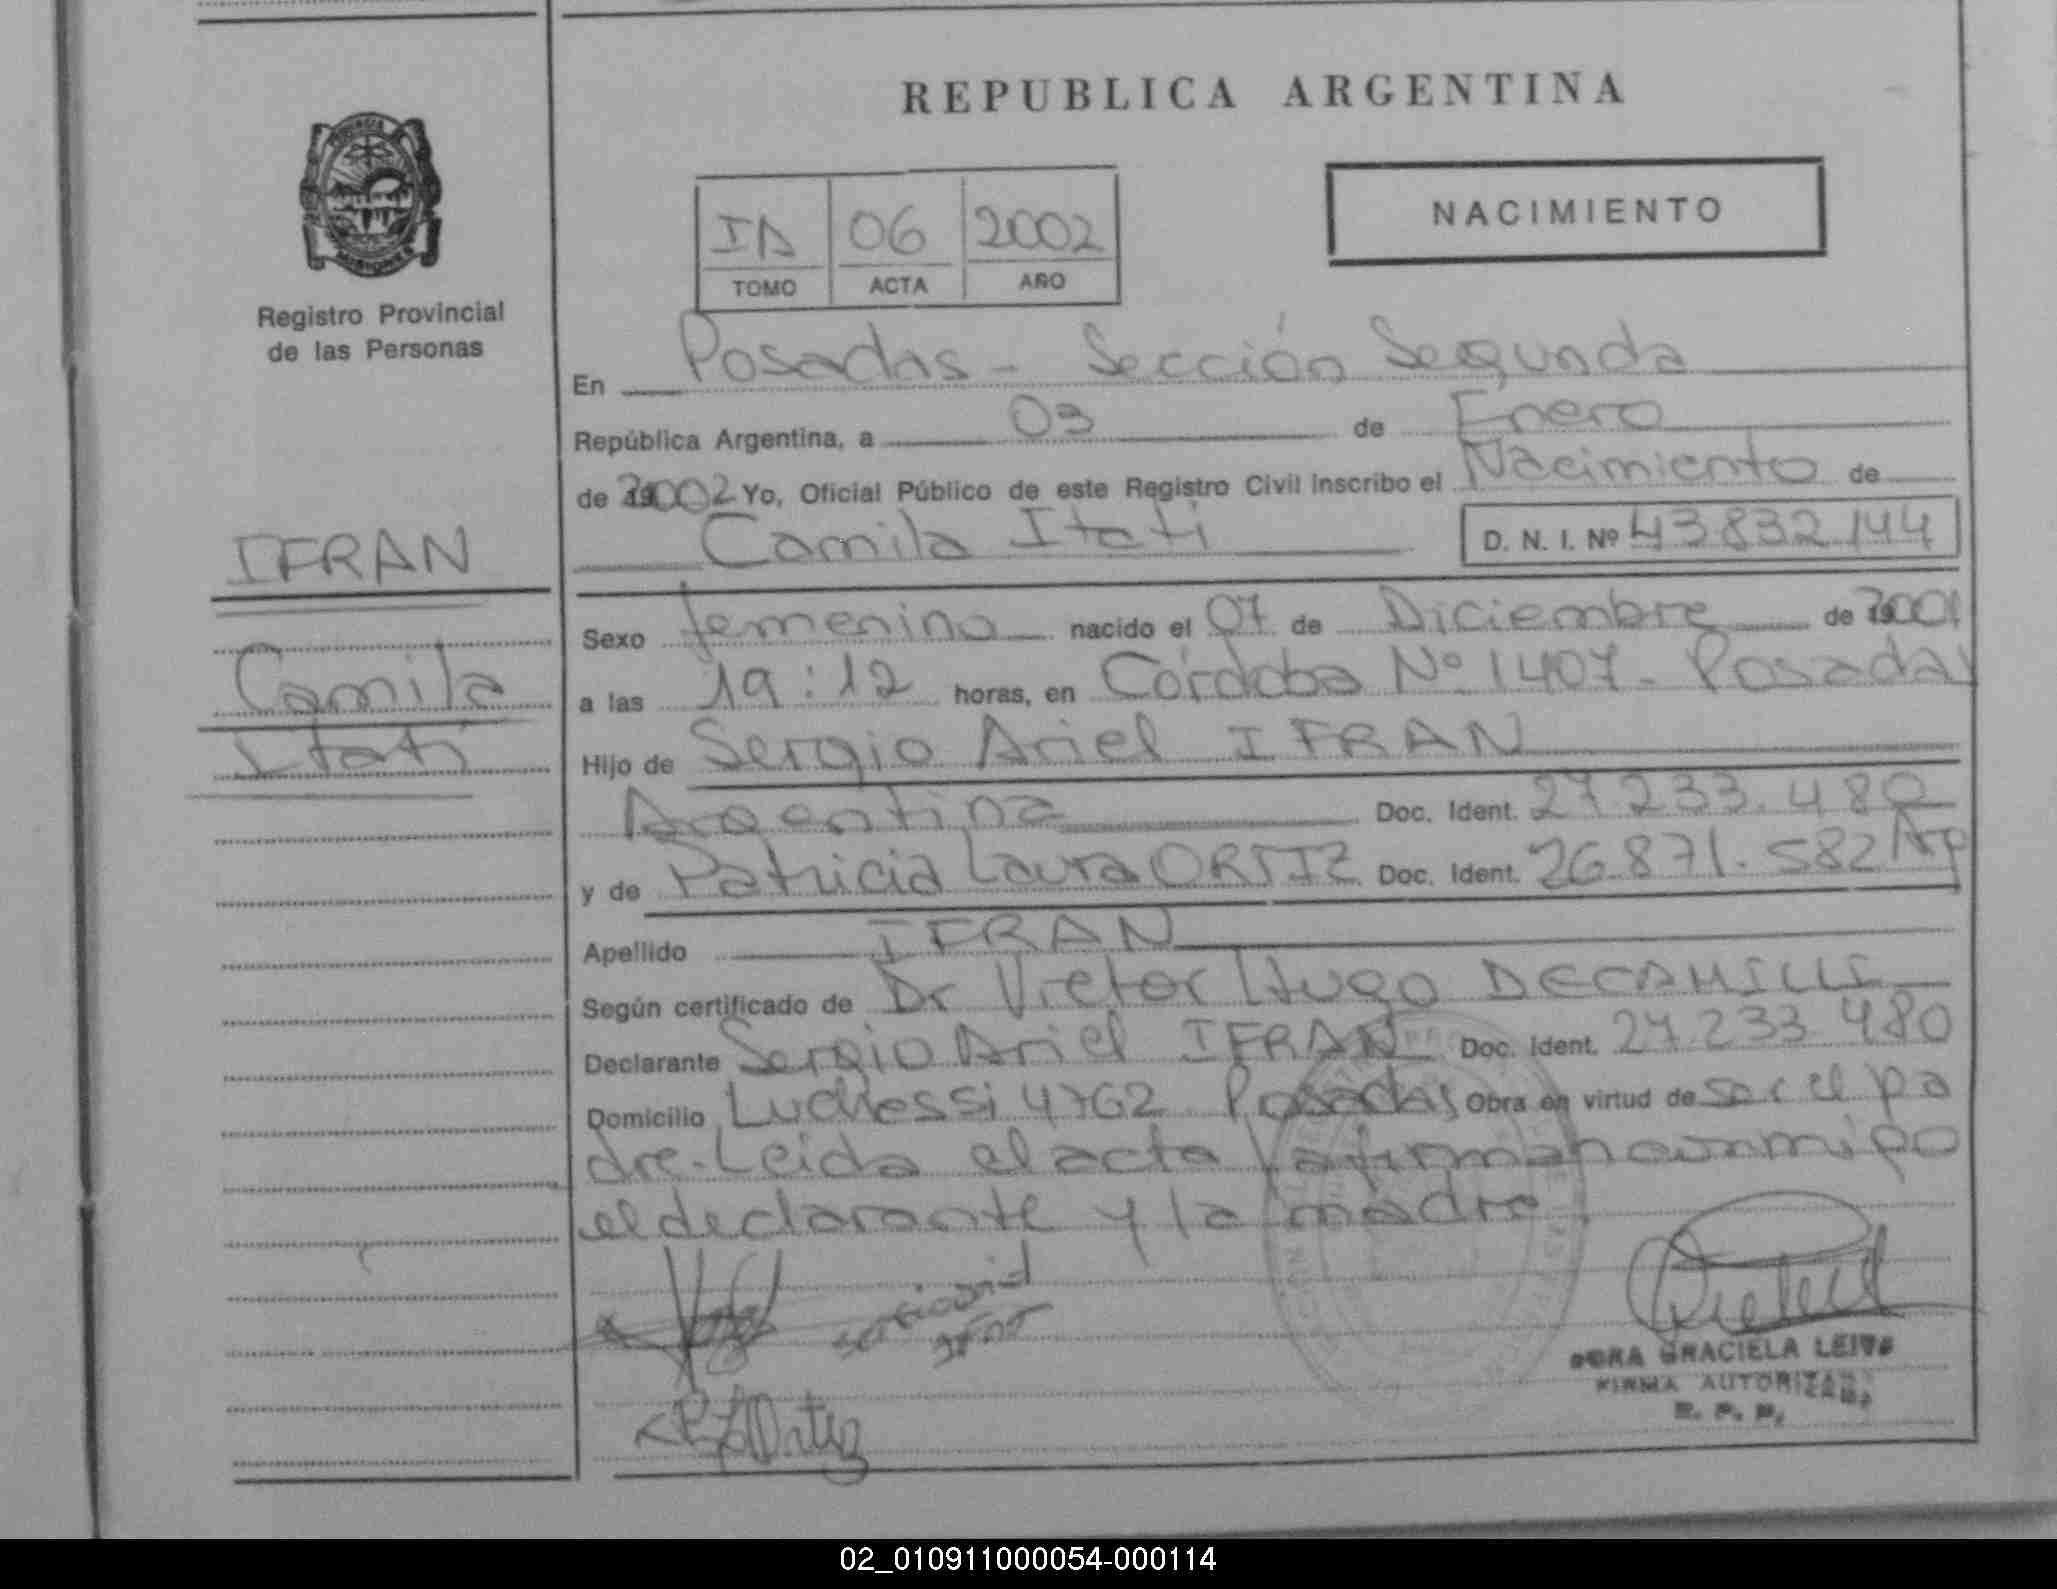 REPUBLICA ARGENTINA
NACIMIENTO
IA 06 2002
TOMO ACTA AÑO
Registro Provincial
de las Personas
En Posadas - Sección Segunda
República Argentina, a 03 de Enero
de 2002 Yo, Oficial Público de este Registro Civil Inscribo el Nacimiento de
Camila Itati D. N. I. Nº 43832144
IFRAN
Camila
Itati
Sexo femenino nacido el 07 de Diciembre de 2001
a las 19:12 horas, en Córdoba Nº 1407 - Posadas
Hijo de Sergio Ariel IFRAN
Argentina Doc. Ident. 27.233.480
y de Patricia Laura ORTIZ Doc. Ident. 26.871.582 Arg
Apellido IFRAN
Según certificado de Dr Victor Hugo DECAMILLI
Declarante Sergio Ariel IFRAN Doc. Ident. 27.233 480
Domicilio Luchessi 4762 Posadas Obra en virtud de ser el pa
dre. Leida el acta la firman conmigo
el declarante y la madre
Ortiz
GRACIELA
FIRMA AUTORIZADA
R. P. P.
02_010911000054-000114